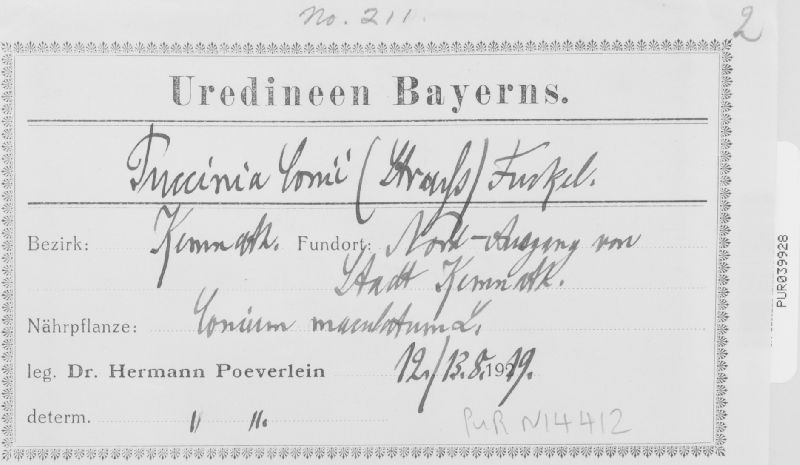 No. 211.
2
Uredineen Bayerns.
Puccinia Conii (Strauss) Fuckel.
Bezirk: Kemnath. Fundort: Nord-Ausgang von
Stadt Kemnath.
Nährpflanze: Conium maculatum L.
leg. Dr. Hermann Poeverlein 12./13.8.1919.
determ. " ".
PUR N14412
PUR039928